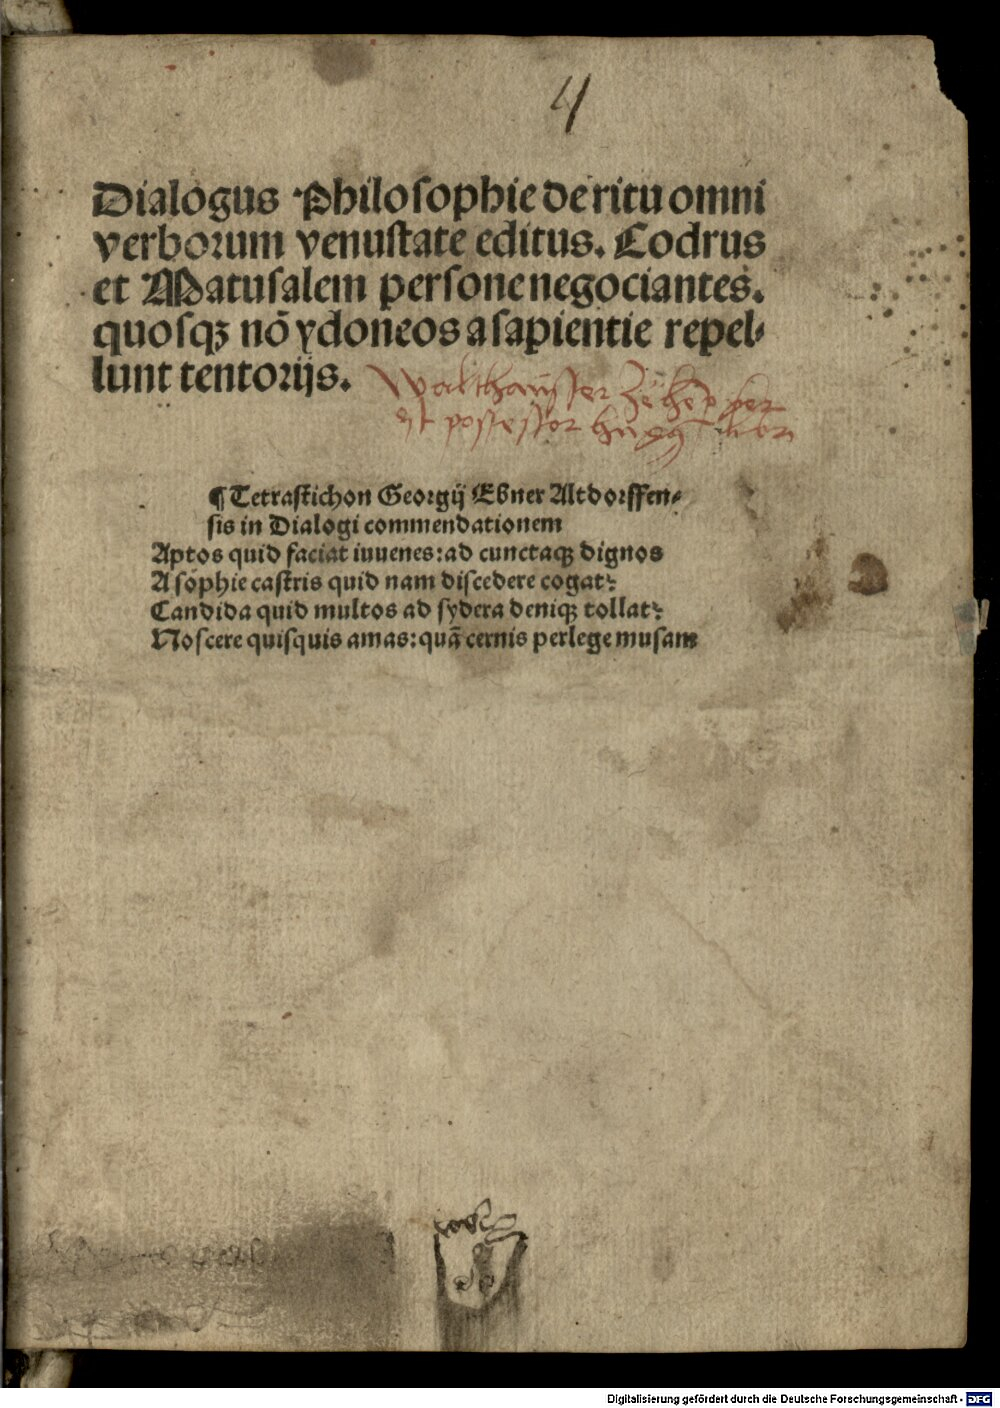 4
Dialogus Philosophie de ritu omni
verborum venustate editus. Codrus
et Matusalem persone negociantes.
quosqꝫ nō ydoneos a sapientie repel⸗
lunt tentorijs.
est possessor
¶ Tetrastichon Georgij Ebner Altdorffen⸗
sis in Dialogi commendationem
Aptos quid faciat iuuenes: ad cunctaqꝫ dignos
A sophie castris quid nam discedere cogat?
Candida quid multos ad sydera deniqꝫ tollat?
Noscere quisquis amas: quā cernis perlege musam
Digitalisierung gefördert durch die Deutsche Forschungsgemeinschaft - DFG